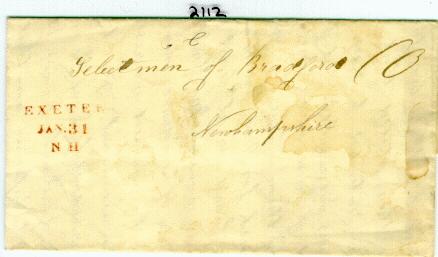 2112
e
Selectmen of Bradford 10
EXETER
JAN. 31
N H
Newhampshire